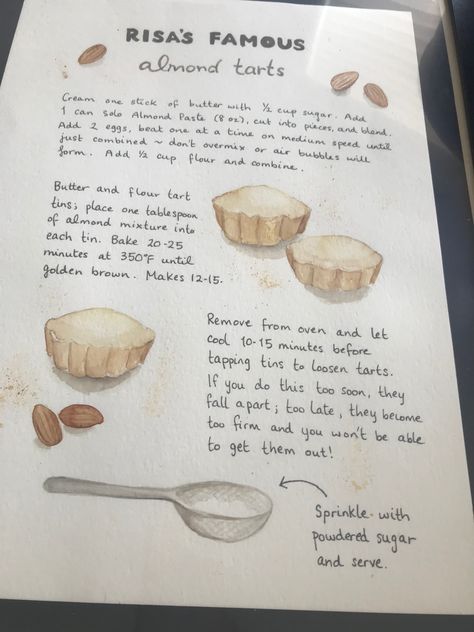 RISA'S FAMOUS
almond tarts
Cream one stick of butter with ½ cup sugar. Add
1 can Solo Almond Paste (8 oz), cut into pieces, and blend.
Add 2 eggs, beat one at a time on medium speed until
just combined ~ don't overmix or air bubbles will
form. Add ½ cup flour and combine.
Butter and flour tart
tins; place one tablespoon
of almond mixture into
each tin. Bake 20-25
minutes at 350°F until
golden brown. Makes 12-15.
Remove from oven and let
cool 10-15 minutes before
tapping tins to loosen tarts.
If you do this too soon, they
fall apart; too late, they become
too firm and you won't be able
to get them out!
Sprinkle with
powdered sugar
and serve.